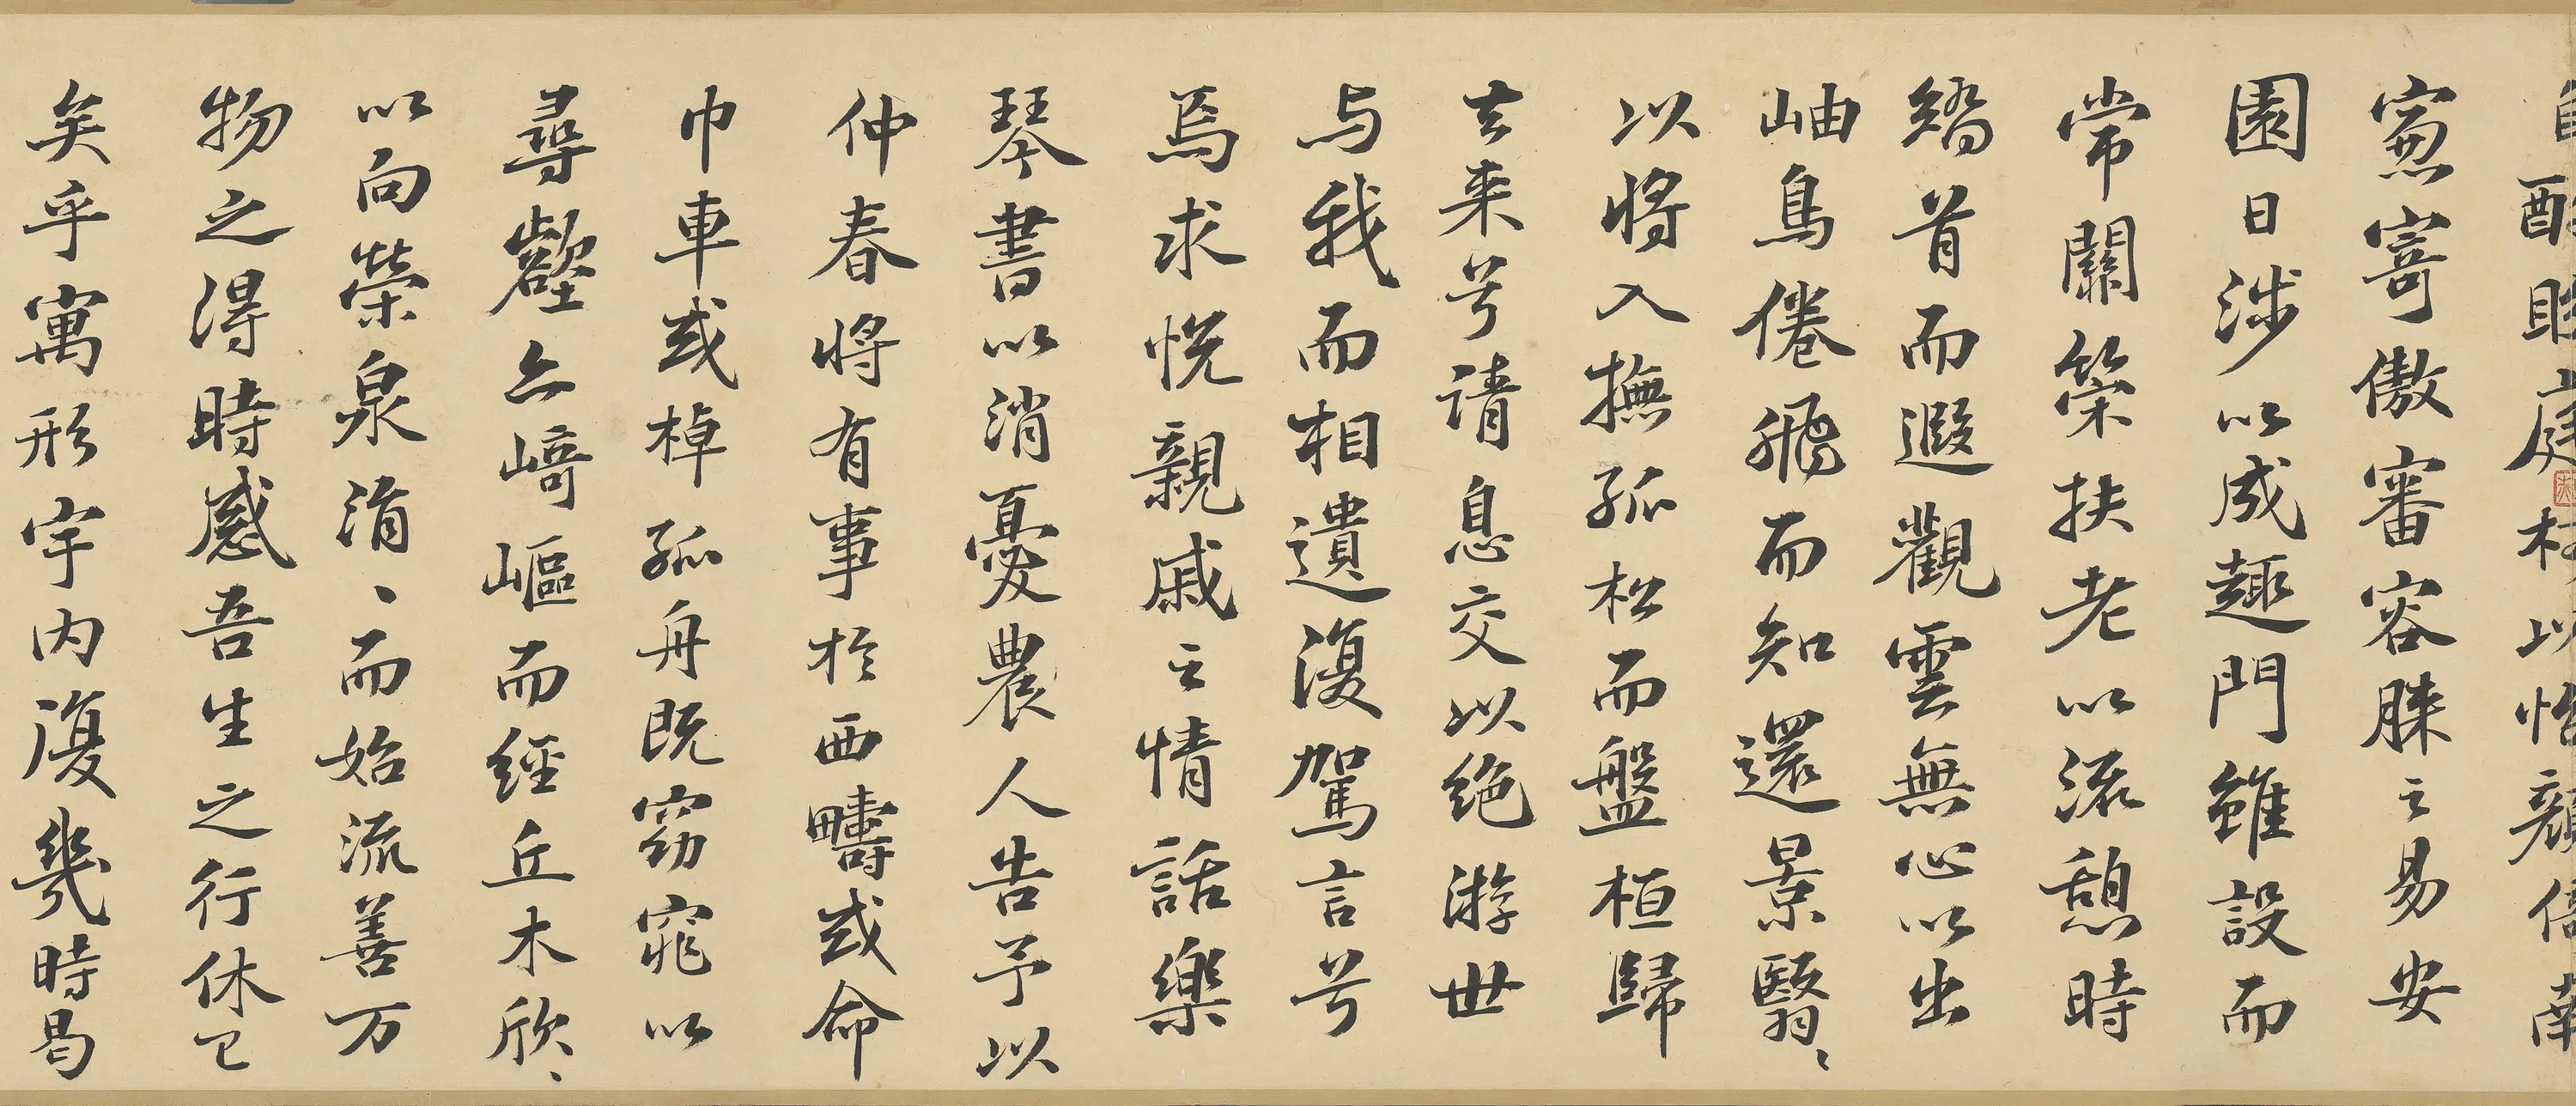 自酌眄庭柯以怡顏倚南
窻寄傲審容膝之易安
園日涉以成趣門雖設而
常關策扶老以流憩時
矯首而遐觀雲無心以出
岫鳥倦飛而知還景翳〻
以將入撫孤松而盤桓歸
去来兮請息交以絕游世
与我而相遺復駕言兮
焉求悅親戚之情話樂
琴書以消憂農人告予以
仲春將有事於西疇或命
巾車或棹孤舟既窈窕以
尋壑亦崎嶇而經丘木欣〻
以向榮泉涓〻而始流善万
物之得時感吾生之行休已
矣乎寓形宇内復幾時曷